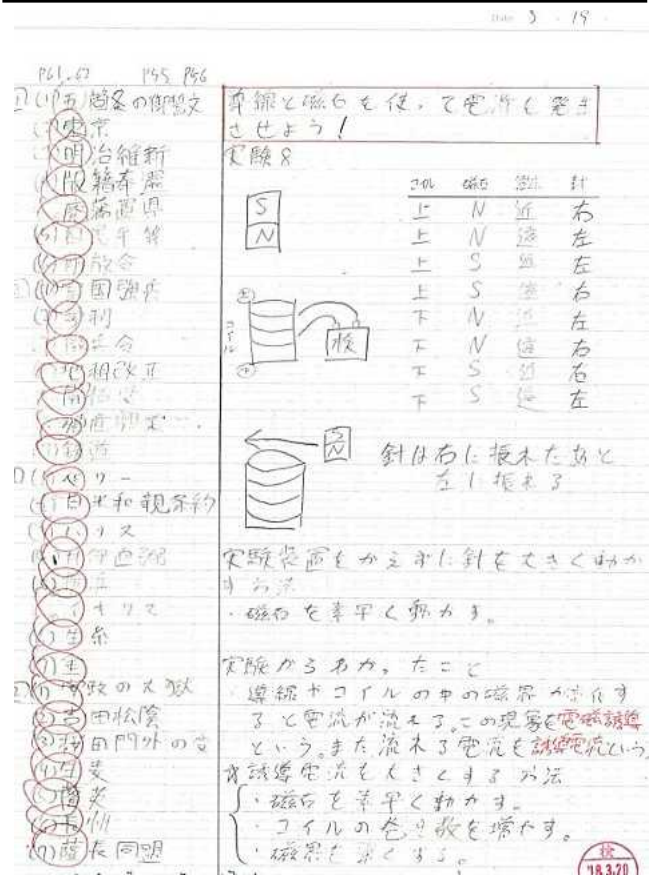 3・19
P61.62 P45 P46
(1)五箇条の御誓文
東京
明治維新
版籍奉還
廃藩置県
四民平等
富国強兵
地租改正
鉄道
ペリー
日米和親条約
ハリス
イギリス
生糸
(1)安政の大獄
(2)吉田松陰
(3)桜田門外の変
(6)長州
(7)薩長同盟
導線と磁石を使って電流を発生
させよう!
実験8
コイル 磁石 針
上 N 近 右
上 N 遠 左
上 S 近 左
上 S 遠 右
下 N 近 左
下 N 遠 右
下 S 近 右
下 S 遠 左
S
N
コイル
検
S
N
針は右に振れたあと
左に振れる
実験装置をかえずに針を大きく動か
す方法
・磁石を素早く動かす。
実験からわかったこと
・導線やコイルの中の磁界が変化す
ると電流が流れる。この現象を電磁誘導
という。また流れる電流を誘導電流という。
誘導電流を大きくする方法
・磁石を素早く動かす。
・コイルの巻き数を増やす。
・磁界を強くする。
検
'18.3.20